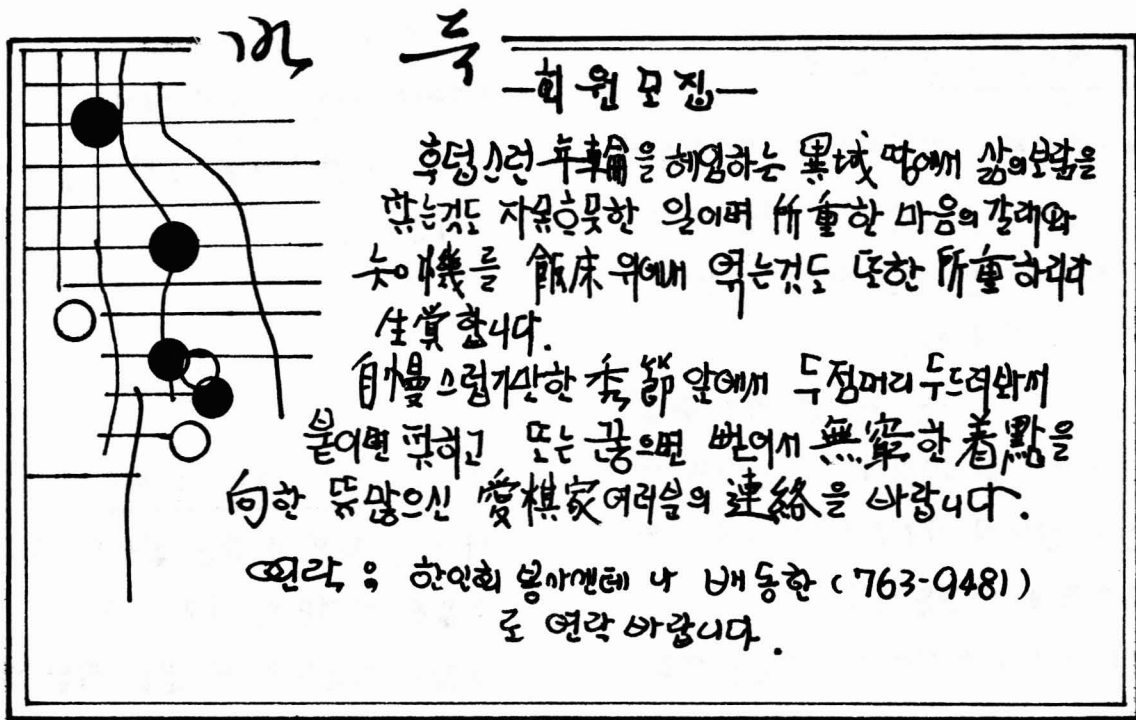 기원
—회원모집—
후덥스런 年輪을 헤엄하는 異域 땅에서 삶의보람을
찾는것도 자못흐뭇한 일이며 所重한 마음의갈래와
눗이機를 飯床 위에서 엮는것도 또한 所重하리라
生覺합니다.
自慢스럽기만한 季節 앞에서 두점머리 두드려봐서
붙이면 젖히고 또는 끊으면 뻗어서 無窮한 着點을
向한 뜻많으신 愛棋家여러분의 連絡을 바랍니다.
연락 : 한인회 봉사센테 나 배동한 (763-9481)
로 연락바랍니다.